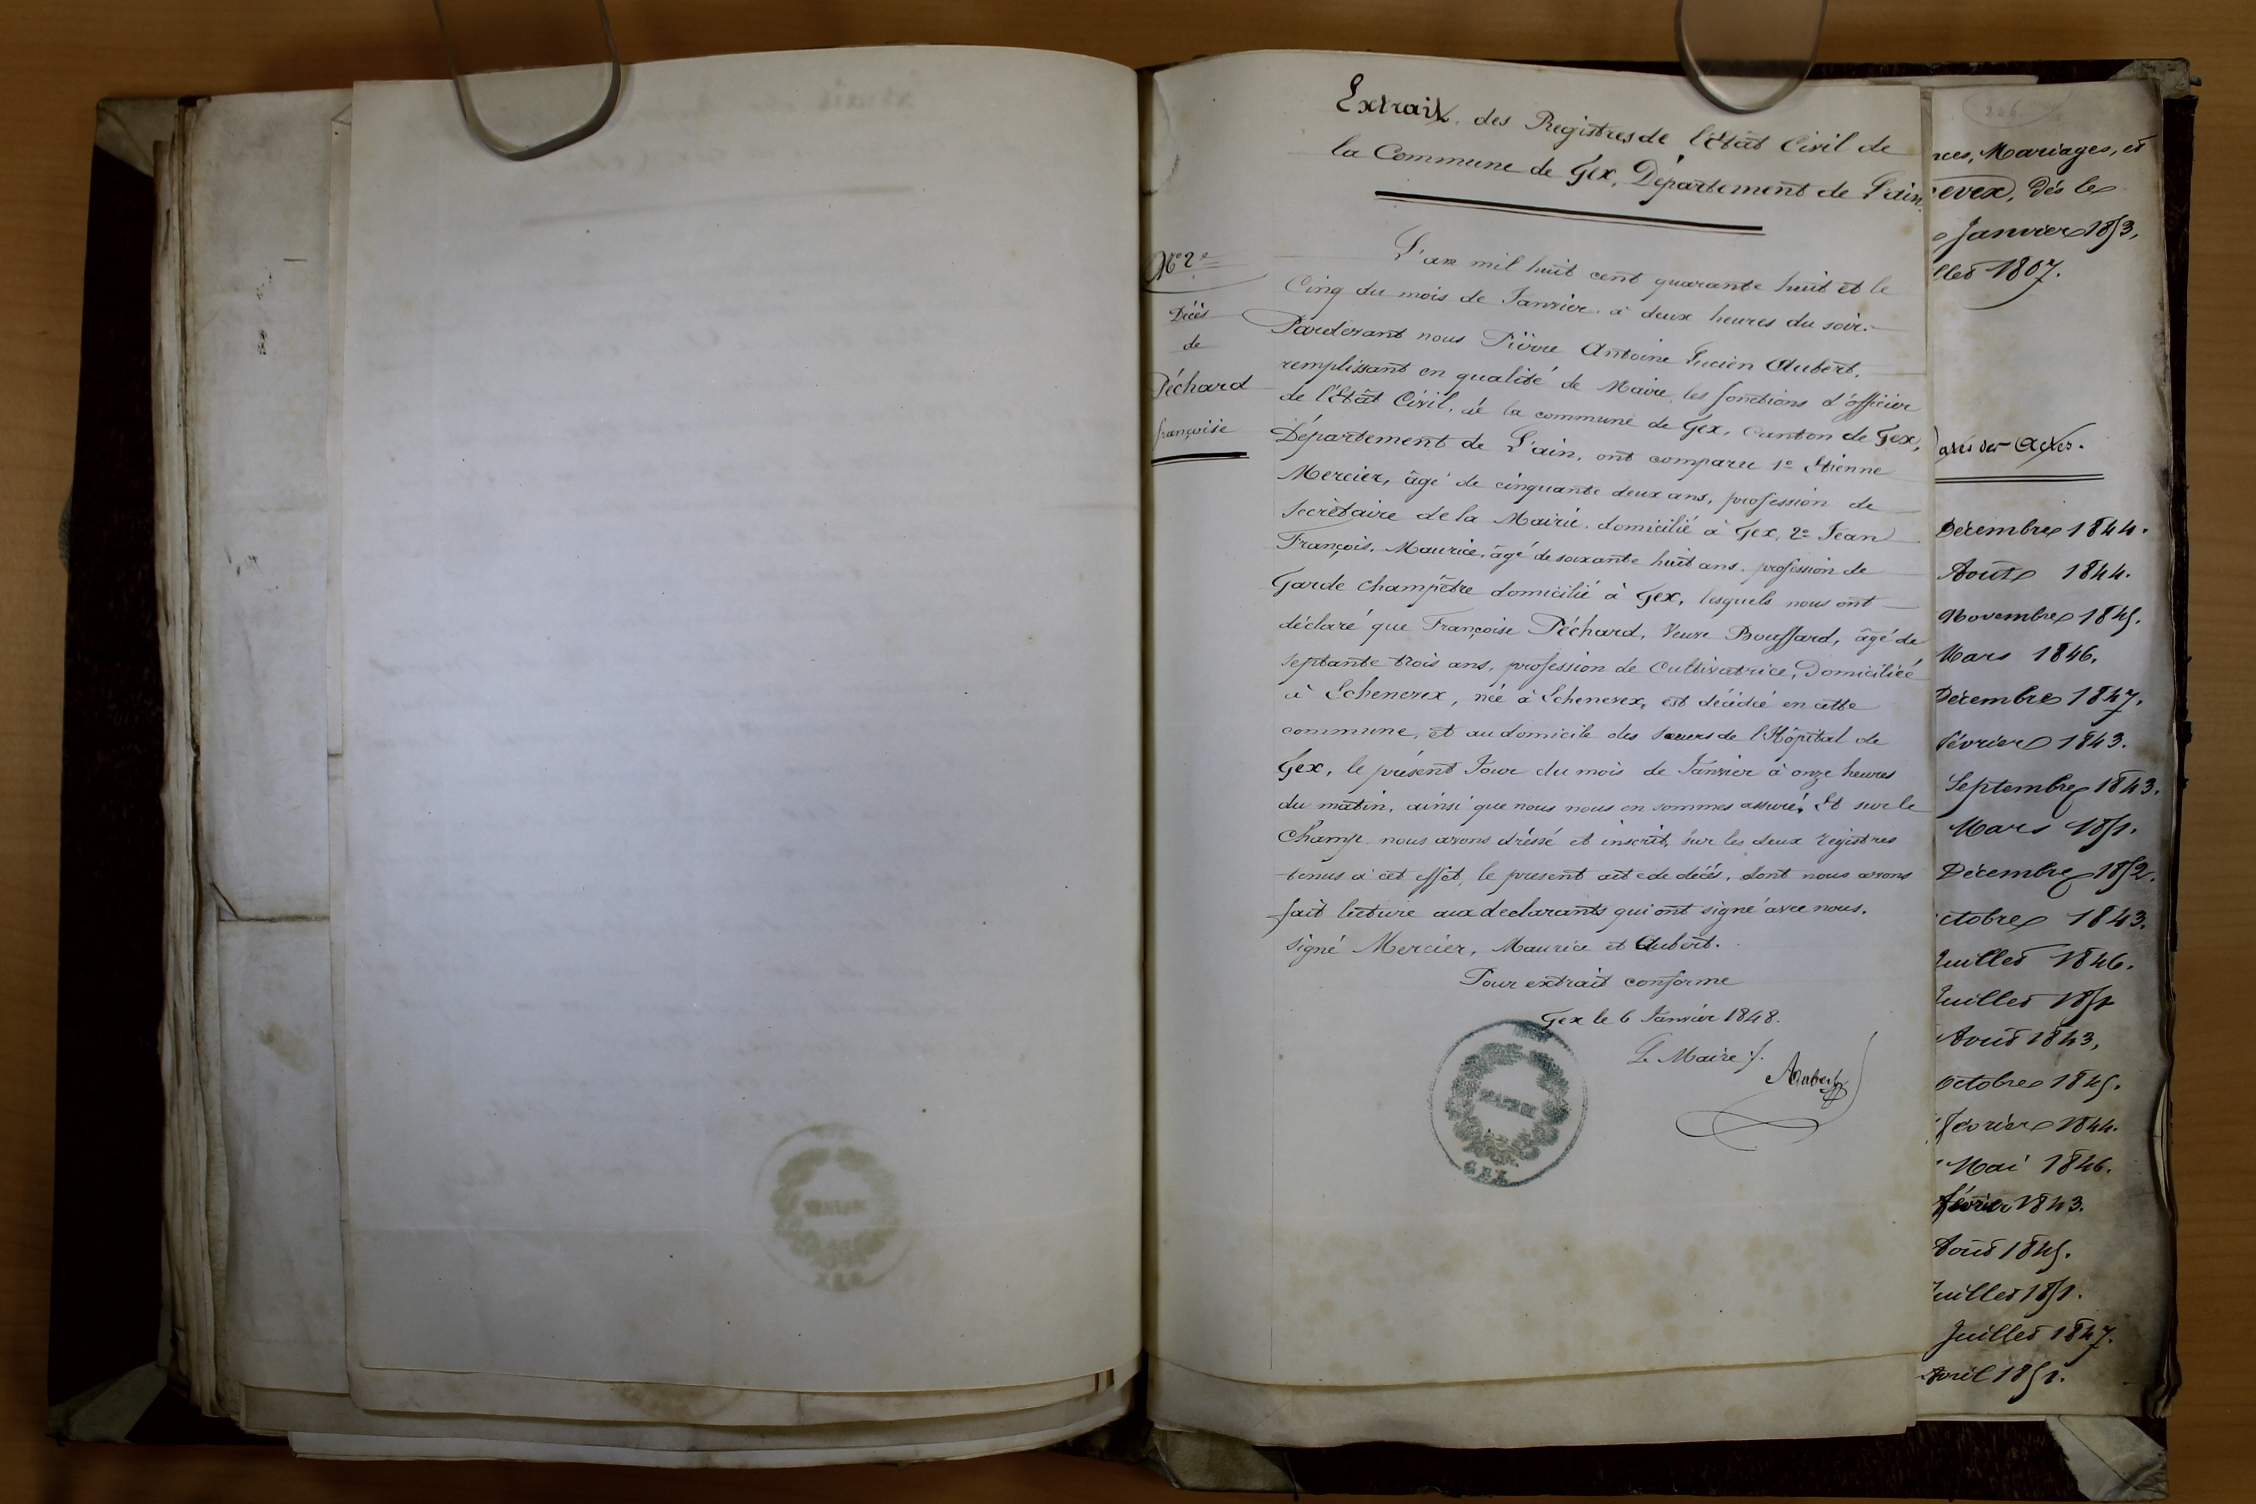 Extrait des Registres de l'Etât Civil de
la Commune de Gex, Département de L'ain.
N° 2e
Décés
de
Péchard
françoise
L'an mil huit cent quarante huit et le
Cinq du mois de Janvier à deux heures du soir.
Pardevant nous Piérre Antoine Lucien Aubert,
remplissant en qualité de Maire, les fonctions d'officier
de l'Etât Civil, de la commune de Gex, canton de Gex,
Département de L'ain, ont comparu 1e Etienne
Mercier, âgé de cinquante deux ans, profession de
Secrétaire de la Mairie, domicilié à Gex, 2e Jean
François Maurice, âgé de soixante huit ans, profession de
Garde Champêtre domicilié à Gex, lesquels nous ont
déclaré que Françoise Péchard, Veuve Bouffard, âgé de
septante trois ans, profession de Cultivatrice, Domiciliée
à Echenevex, née à Echenevex, est décédée en cette
commune, et au domicile des sœurs de l'Hôpital de
Gex, le présent Jour du mois de Janvier à onze heures
du matin, ainsi que nous nous en sommes assuré, Et sur le
Champ nous avons dréssé et inscrit sur les deux registres
tenus à cet effet, le present acte de décés, dont nous avons
fait lecture aux declarants qui ont signé avec nous.
signé Mercier, Maurice et Aubert.
Pour extrait conforme
Gex le 6 Janvier 1848.
Le Maire /.
Aubert
MAIRIE
GEX
206
nces, Mariages, et
evex, dés le
Janvier 1853,
llet 1807.
des Actes.
Décembre 1844.
Août 1844.
Novembre 1845.
Mars 1846.
Décembre 1847.
février 1843.
Septembre 1843.
Mars 1851.
Décembre 1852.
ctobre 1843.
Juillet 1846.
Juillet 1851
Août 1843,
Octobre 1845.
février 1844.
Mai 1846.
février 1843.
Août 1845.
Juillet 1851.
Juillet 1847.
Avril 1851.